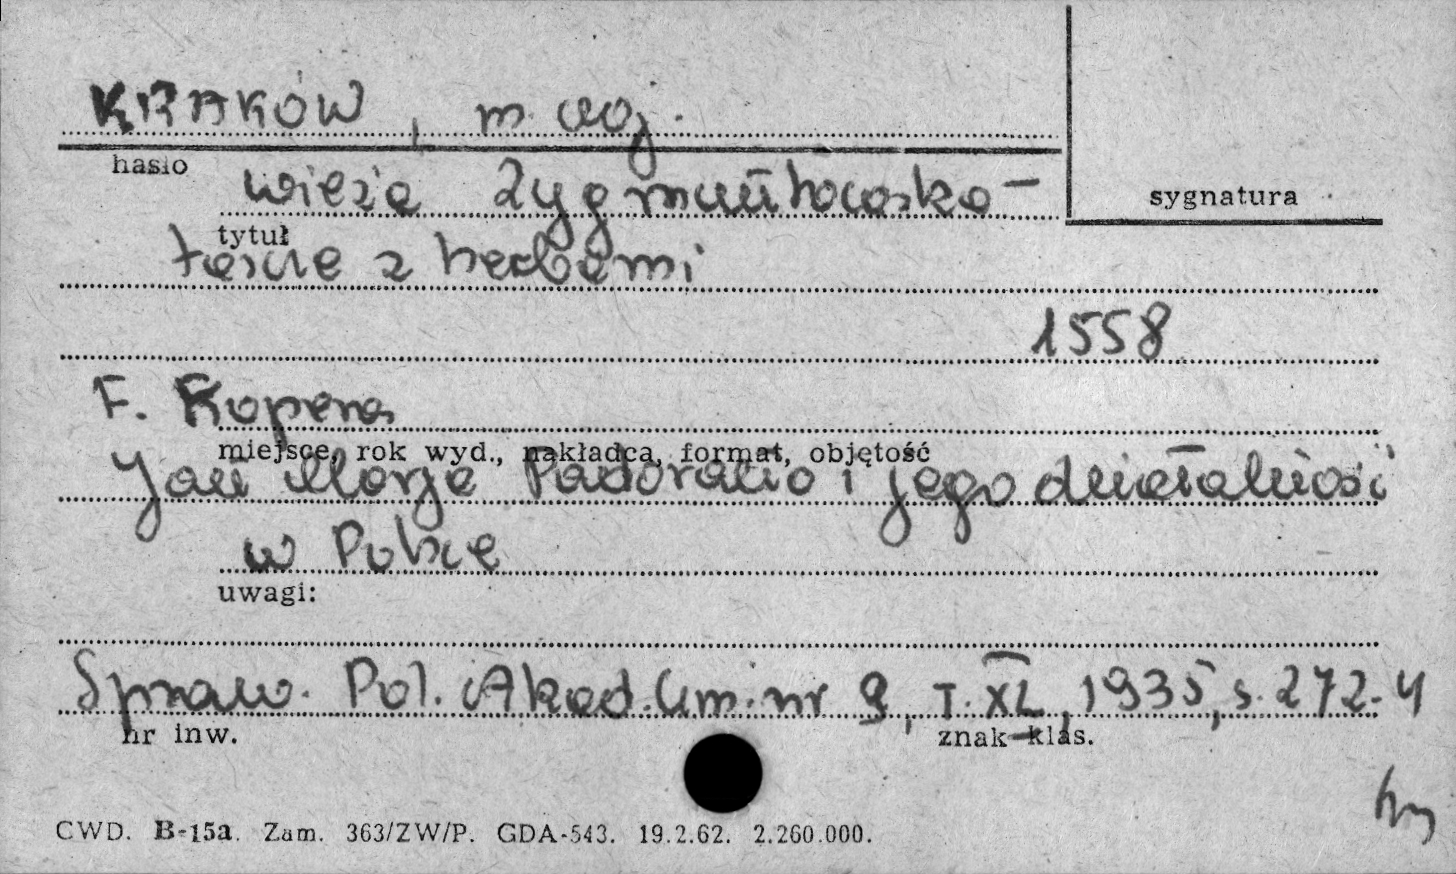 KRAKÓW, m. woj.
hasło
wieża Zygmuntowska –
sygnatura
tytuł
tarcze z herbami
1558
F. Kopera
miejsce, rok wyd., nakładca, format, objętość
Jan Maria Padovano i jego działalność
w Polsce
uwagi:
Spraw. Pol. Akad. Um. nr 9, T. XL, 1935, s. 272-4
nr inw.
znak klas.
CWD. B-15a. Zam. 363/ZW/P. GDA-543. 19.2.62. 2.260.000.